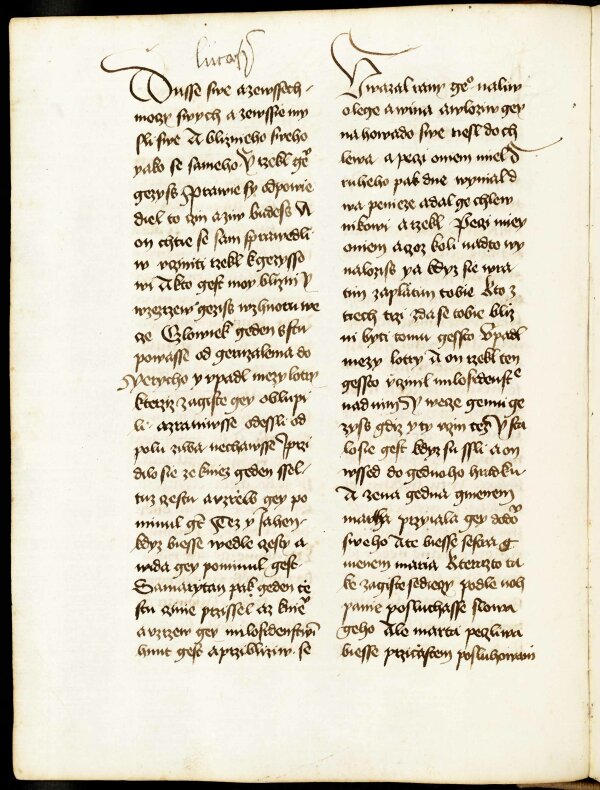 lucaß
Dusse swe azewssech
mozy swych a zewssie my
sli swe A blizneho sweho
yako se sameho Y rzekl geͦ
gezyss Prawie sy odpowie
diel to czin aziw budess A
on chtie se sam sprawedli
w vcziniti rzekl k gezysso
wi A kto gest moy blizni Y
wzezrzew geziss wzhuoru we
ce Czlowiek geden sstu
powasse od geruzalema do
yerycho y vpadl mezy lotry
kterziz zagiste gey oblupi
li azraniwsse odessli od
polu ziwa nechawsse Iprzi
dilo sie ze kniez geden ssel
tuz cestu a vzrew gey po
minul gt Tez y Jahen
kdyz biesse wedle cesty a
wida gey pominul gest
Samarytan pak geden te
stu czinie przissel az knieͦ
a vzrzew gey milosidenstwi
hnut gest aprzibliziw se
Vwazal rany geͦ naliw
olege awina awloziw gey
na howado swe nesl doch
lewa a peczi oniem miel D
ruheho pak dne wyniald
wa penieze adal ge chlew
nikowi arzekl Peczi miey
oniem acoz koli nadto wy
nalozis ya kdyz sie wra
tim zaplatim tobie Kto z
tiech trzi zdase tobie bliz
ni byti tomu gessto vpadl
mezy lotry A on rzekl ten
gessto vczinil milosidenste
nadnim Y wece gemu ge
zyss gdiz y ty vczin tez Y sta
losie gest kdyz su ssli a on
wssed do gednoho hradku
A zena gedna gmenem
martha przyiala gey dodoͦ
sweho Ate biesse sestra g
menem maria Kterezto ta
ke zagiste sedieczy podle noh
panie posluchasse slowa
geho Ale marta pecliwa
biesse przicastem posluhowani